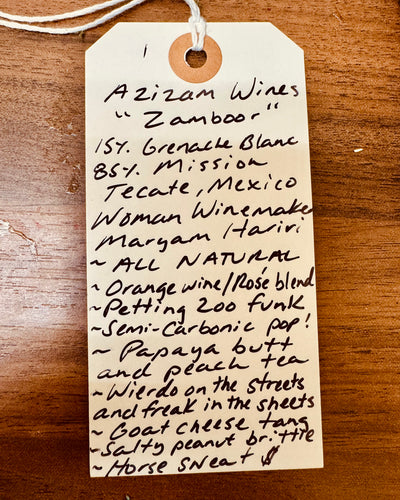 1
Azizam Wines
"Zamboor"
15%. Grenache Blanc
85%. Mission
Tecate, Mexico
Woman Winemaker
Maryam Hariri
~ ALL NATURAL
~Orange wine/Rosé blend
~Petting zoo funk
~Semi-Carbonic pop!
~ Papaya butt
and peach tea
~Wierdo on the streets
and freak in the sheets
~Goat cheese tang
~Salty peanut brittle
~Horse sweat $